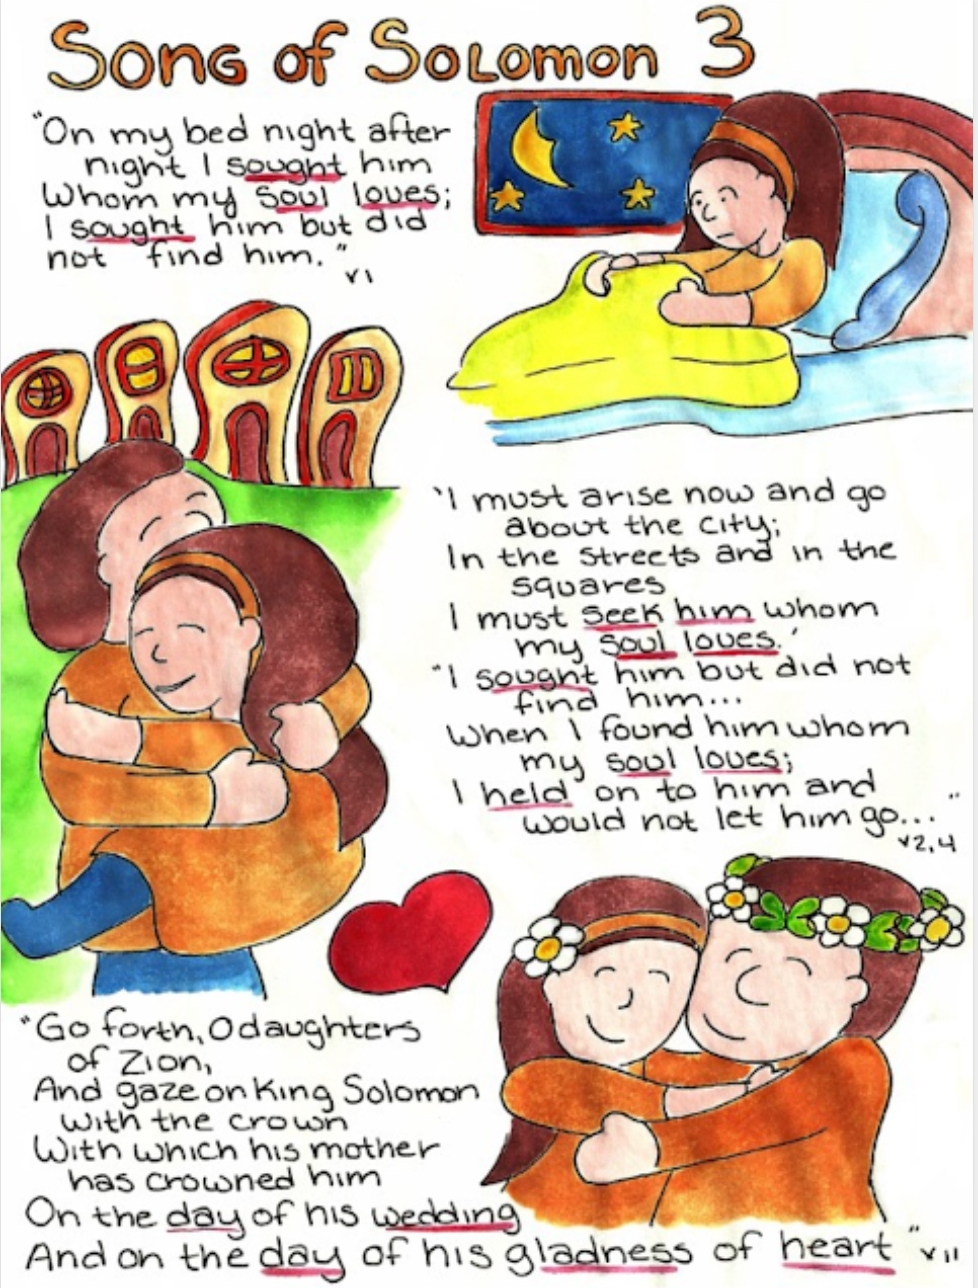 Song of Solomon 3
"On my bed night after
night I sought him
Whom my soul loves;
I sought him but did
not find him."
v1
'I must arise now and go
about the city;
In the streets and in the
squares
I must seek him whom
my soul loves.'
"I sought him but did not
find him...
When I found him whom
my soul loves;
I held on to him and
would not let him go..."
v2,4
"Go forth, O daughters
of Zion,
And gaze on King Solomon
with the crown
With which his mother
has crowned him
On the day of his wedding
And on the day of his gladness of heart" v11